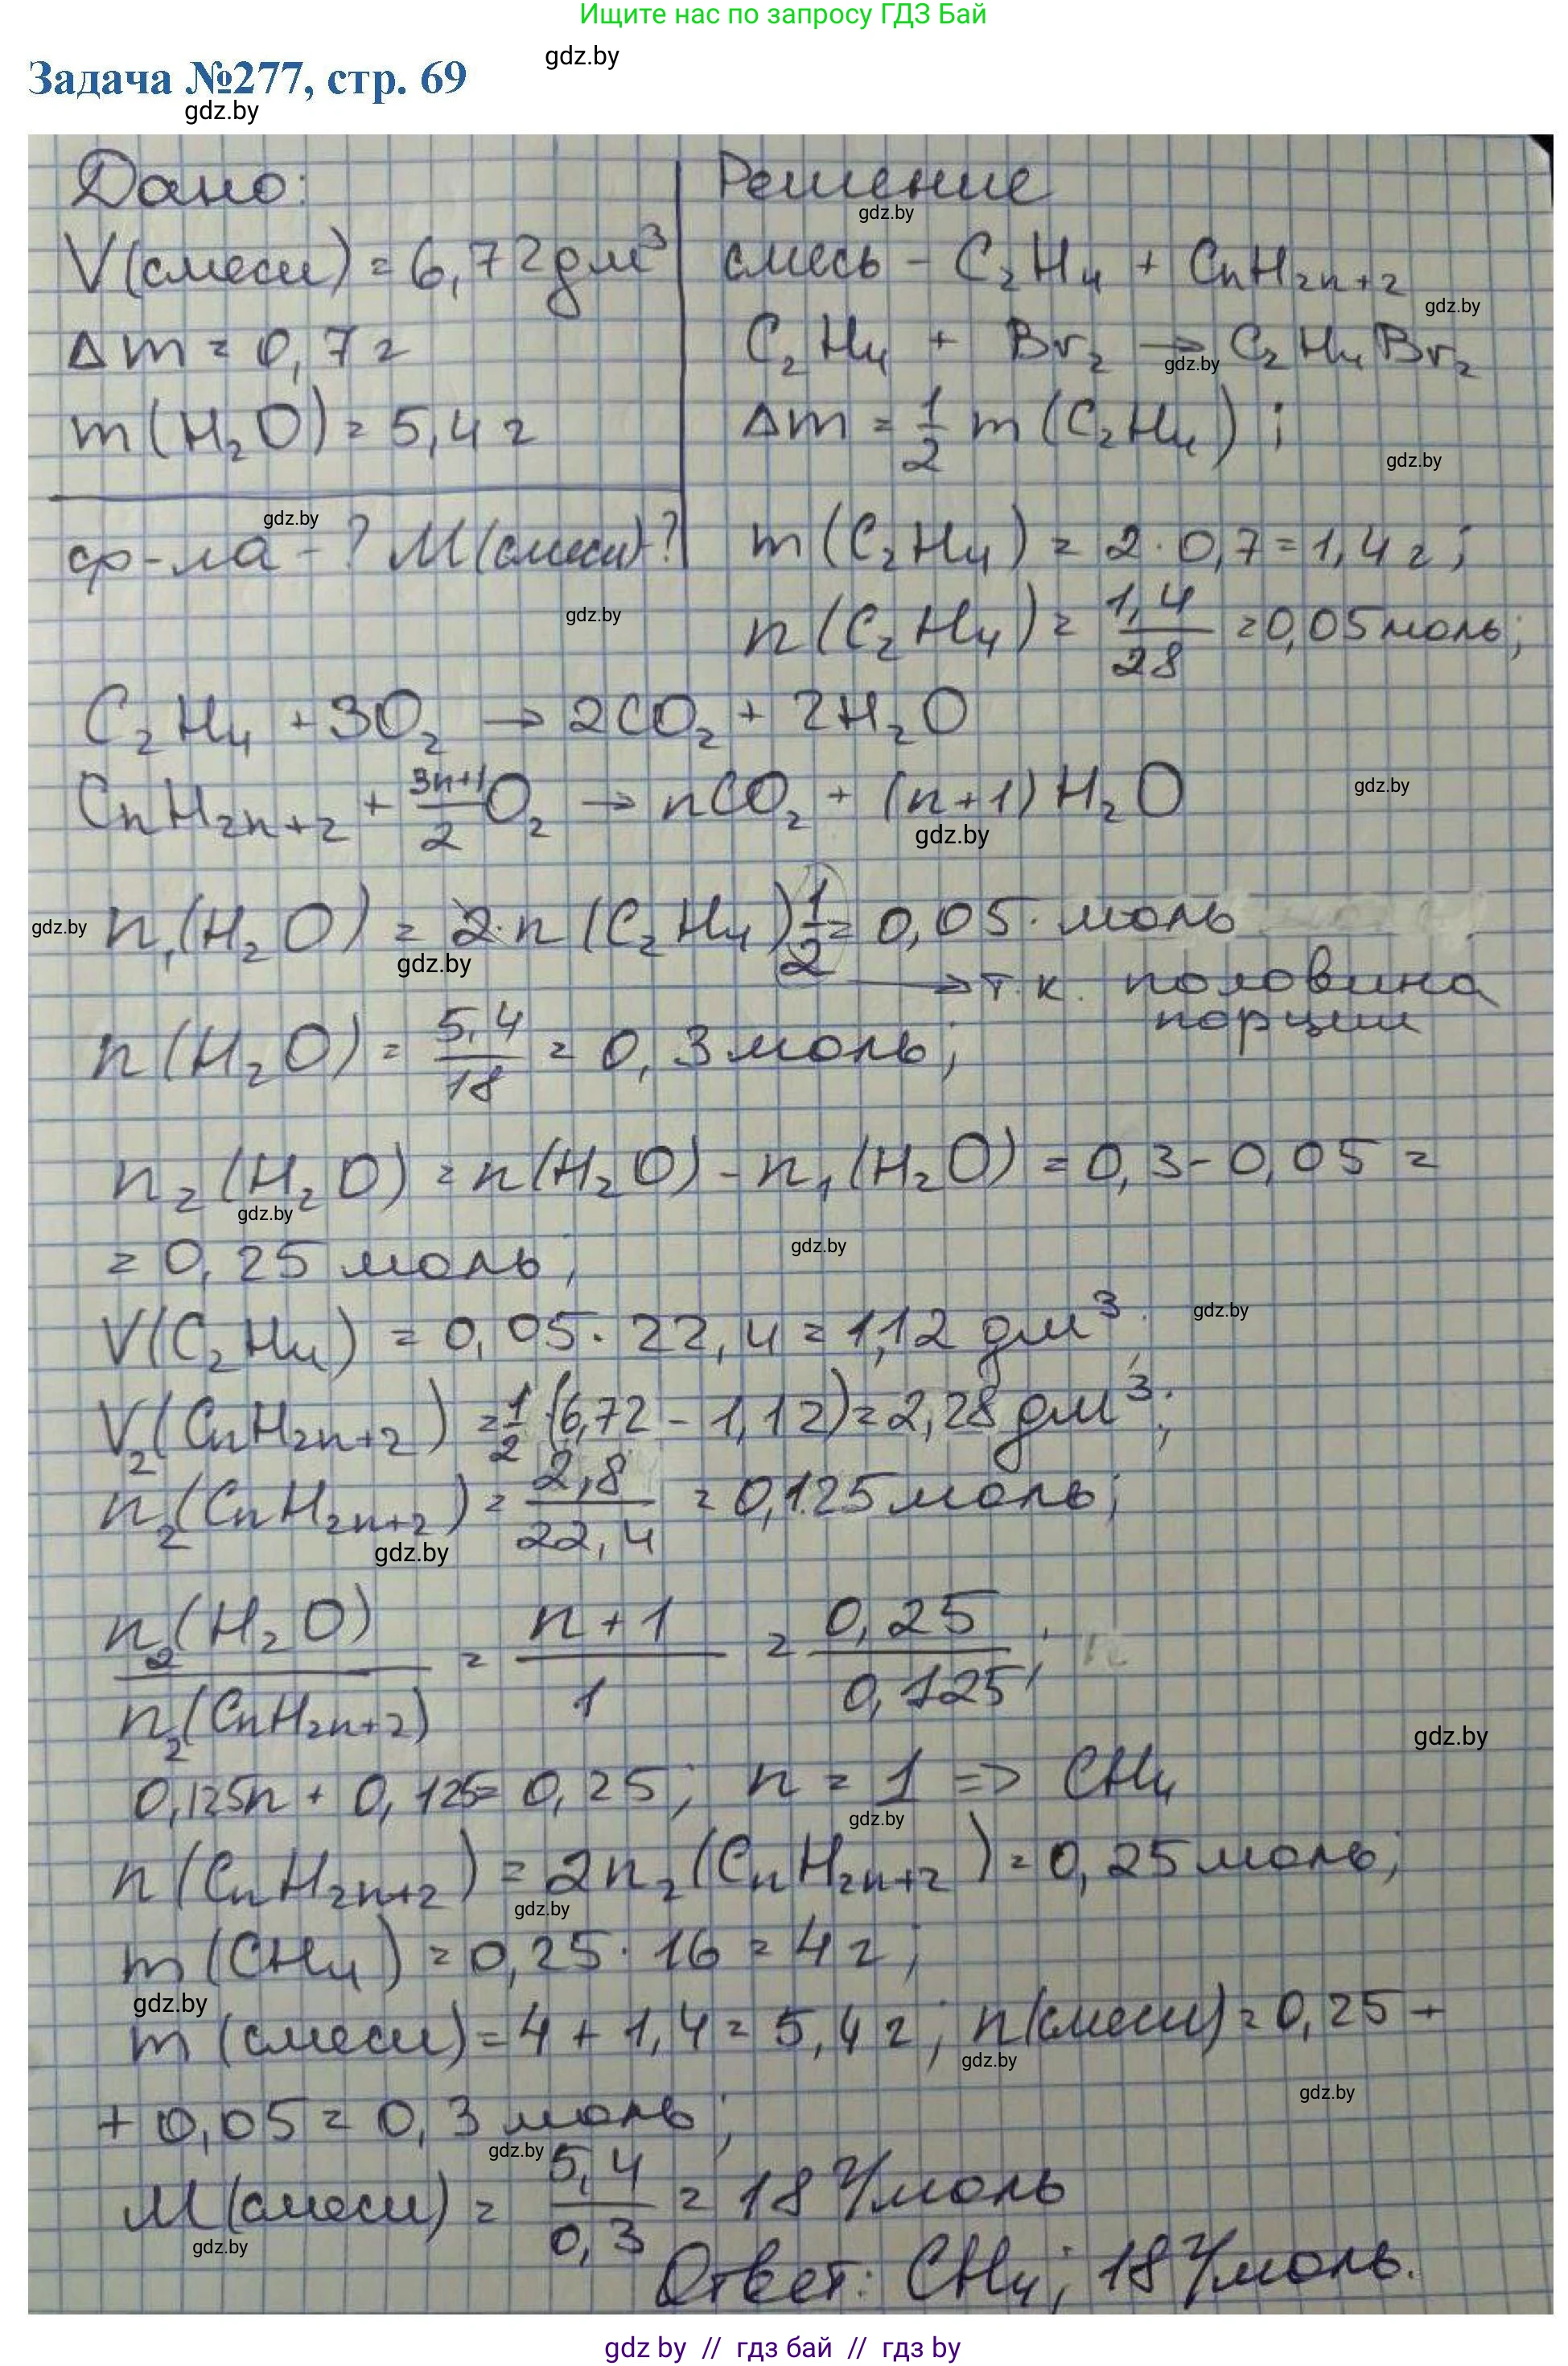 Ищите нас по запросу ГДЗ Бай
gdz.by
Задача №277, стр. 69
gdz.by
Дано:
V(смеси) = 6,72 дм³
Δm = 0,7 г
m(H₂O) = 5,4 г
gdz.by
ф-ла - ? M(смеси)-?
Решение
gdz.by
смесь - C₂H₄ + CnH₂n+₂
gdz.by
C₂H₄ + Br₂ → C₂H₄Br₂
gdz.by
Δm = 1/2 m(C₂H₄);
gdz.by
m(C₂H₄) = 2·0,7 = 1,4 г;
gdz.by
n(C₂H₄) = 1,4/28 = 0,05 моль;
C₂H₄ + 3O₂ → 2CO₂ + 2H₂O
CnH₂n+₂ + 3n+1/2 O₂ → nCO₂ + (n+1)H₂O
gdz.by
gdz.by
gdz.by
n₁(H₂O) = 2·n(C₂H₄)1/2 = 0,05· моль
gdz.by
→ т.к. половина
порции
n(H₂O) = 5,4/18 = 0,3 моль;
n₂(H₂O) = n(H₂O) - n₁(H₂O) = 0,3-0,05 =
gdz.by
= 0,25 моль;
gdz.by
V(C₂H₄) = 0,05·22,4 = 1,12 дм³;
gdz.by
V₂(CnH₂n+₂) = 1/2·(6,72 - 1,12) = 2,28 дм³;
n₂(CnH₂n+₂) = 2,8/22,4 = 0,125 моль;
gdz.by
n₂(H₂O)/n₂(CnH₂n+₂) = n+1/1 = 0,25/0,125;
gdz.by
0,125n + 0,125 = 0,25; n = 1 => CH₄
gdz.by
n(CnH₂n+₂) = 2n₂(CnH₂n+₂) = 0,25 моль;
gdz.by
m(CH₄) = 0,25·16 = 4 г;
gdz.by
m(смеси) = 4 + 1,4 = 5,4 г; n(смеси) = 0,25 +
gdz.by
gdz.by
+ 0,05 = 0,3 моль;
gdz.by
M(смеси) = 5,4/0,3 = 18 г/моль
gdz.by
Ответ: CH₄; 18 г/моль.
gdz by // гдз бай // гдз by